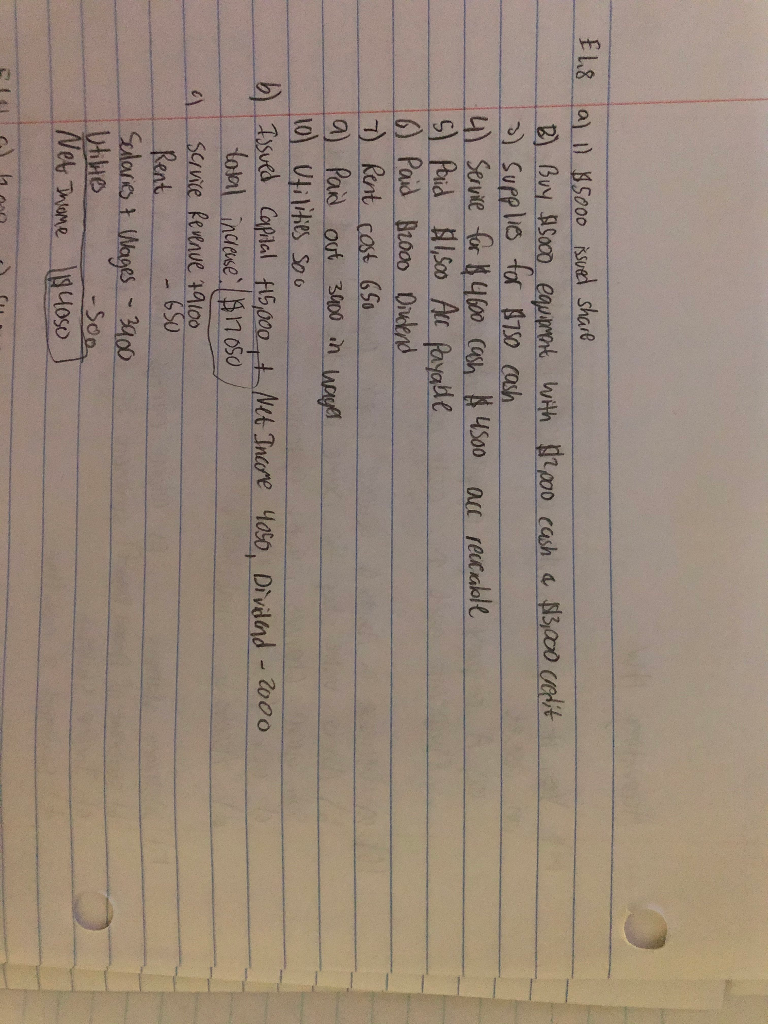 E1.8 a) 1) $5000 issued share
2) Buy $5000 equipment with $2,000 cash & $3,000 credit
3) Supplies for $750 cash
4) Service for $4600 cash $4500 acc
5) Paid $1,500 Acc Payable
6) Paid $2000 Dividend
7) Rent cost 650
9) Paid out 3900 in wages
10) Utilities 500
b) Issued Capital +15,000, + Net Income 4050, Dividend - 2000
total increase: $17050
c) Service Revenue +9100
Rent - 650
Salaries + Wages - 3900
Utilities - 500
Net Income $4050